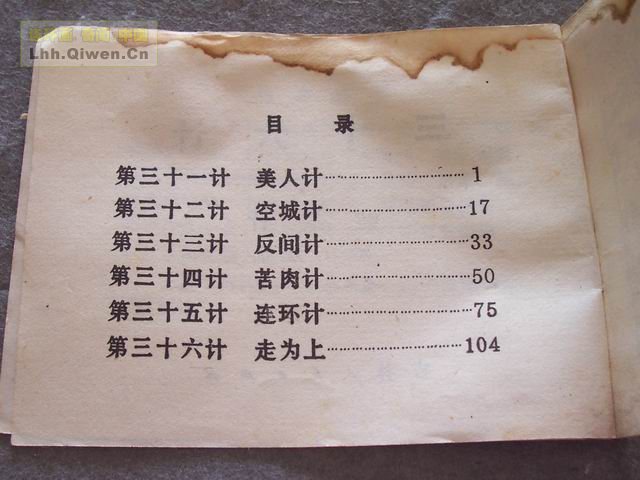 Lhh.Qiwen.Cn
目 录
第三十一计 美人计……………………………1
第三十二计 空城计……………………………17
第三十三计 反间计……………………………33
第三十四计 苦肉计……………………………50
第三十五计 连环计……………………………75
第三十六计 走为上……………………………104